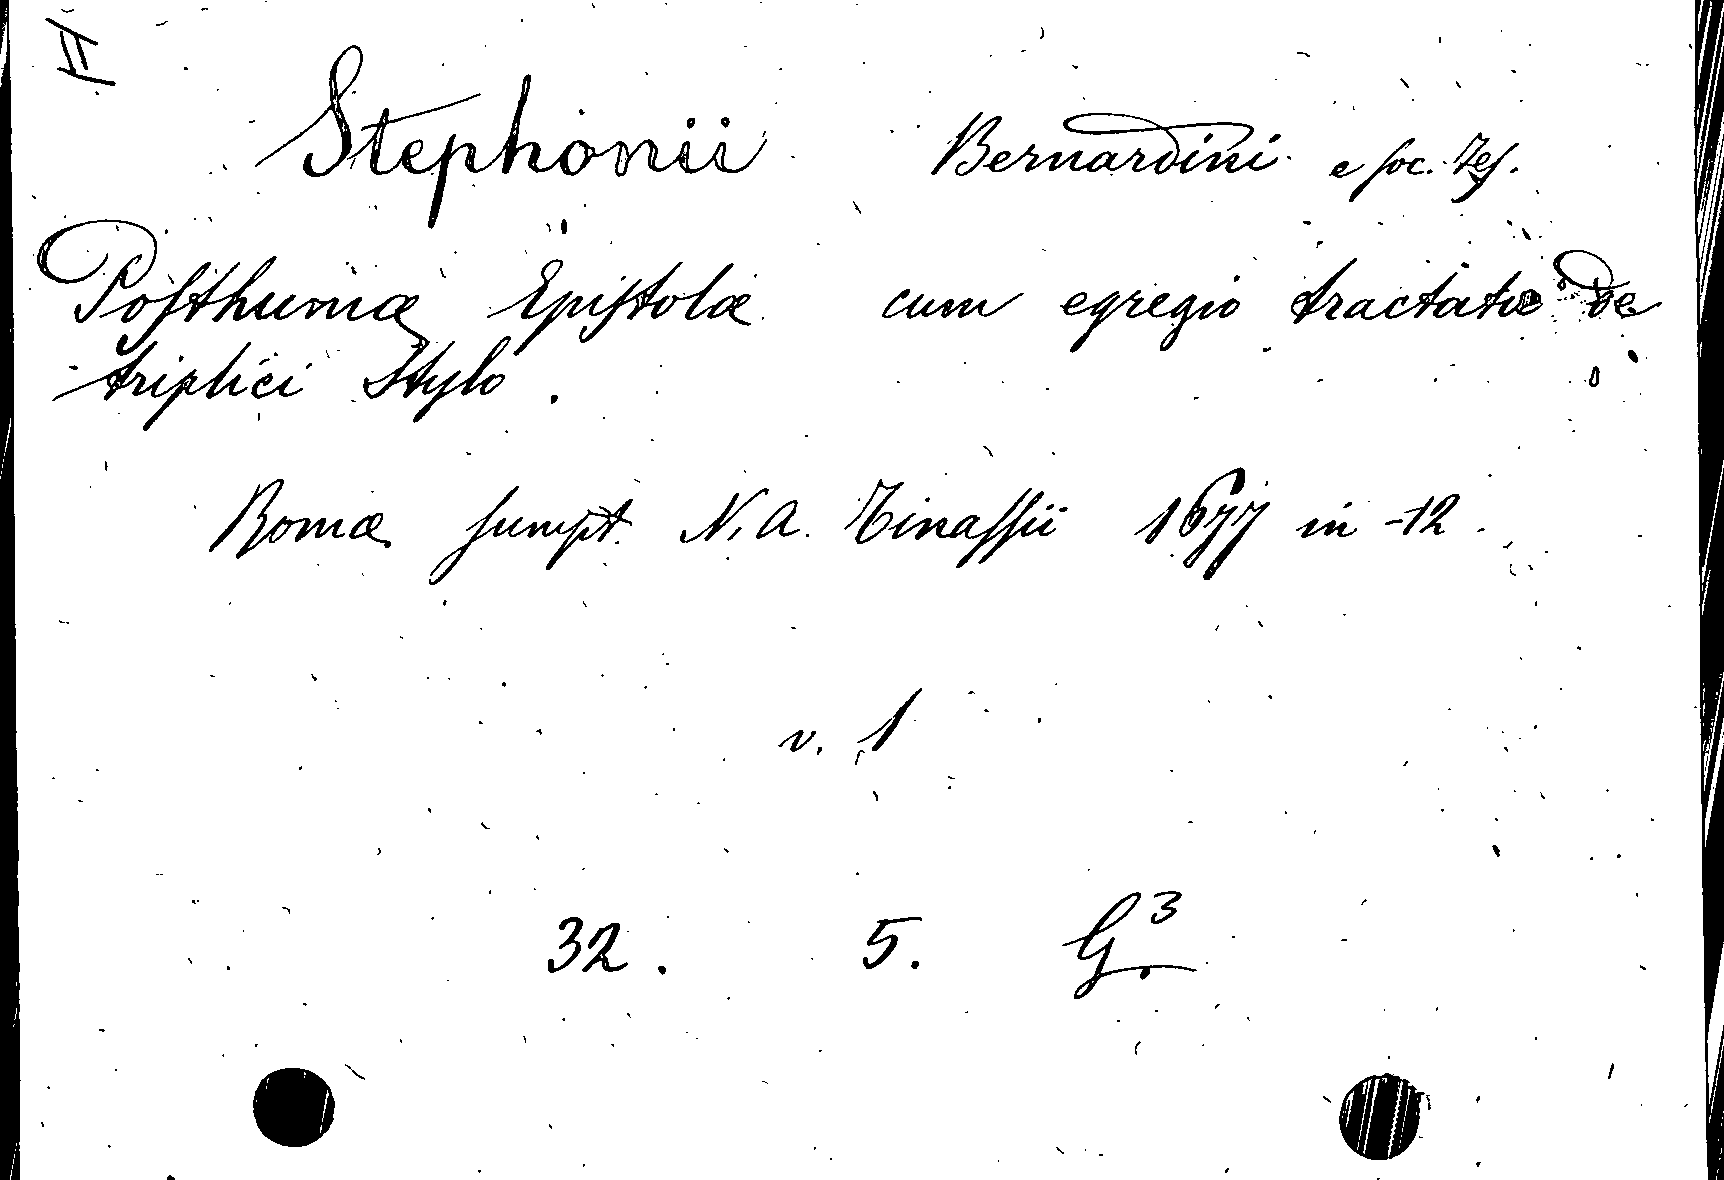 II
Stephonii Bernardini e soc. Jes.
Posthumæ Epistolæ cum egregio tractatu de
triplici Stylo.
Romæ sumpt. N. A. Tinassii 1677 in -12.
v. 1
32. 5. G³.